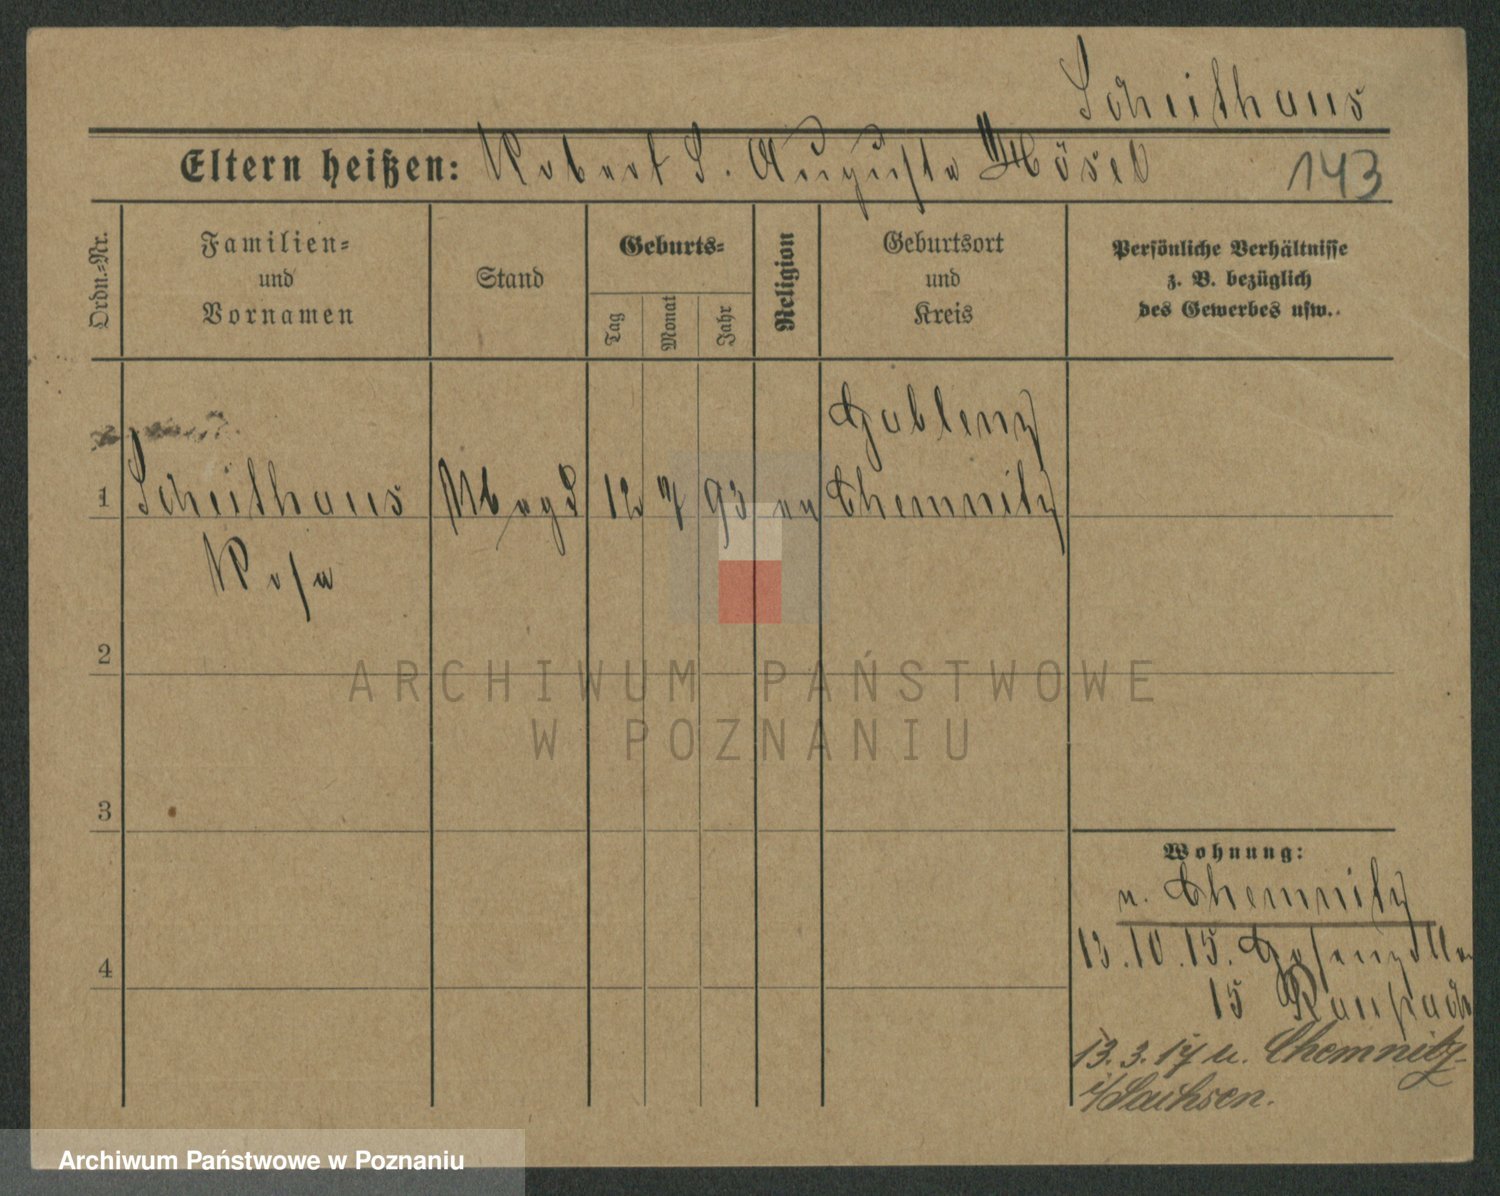 Scheithaus
Eltern heißen: Robert S. Auguste Hösel 143
Ordn.-Nr.
Familien-
und
Vornamen
Stand
Geburts-
Tag
Monat
Jahr
Religion
Geburtsort
und
Kreis
Persönliche Verhältnisse
z. B. bezüglich
des Gewerbes usw.
Gablenz
1 Scheithaus Magd 12 7 93 ev Chemnitz
Rosa
2
3
4
Wohnung:
n. Chemnitz
13.10.15.
15
13.3.17 n. Chemnitz
i/Sachsen.
ARCHIWUM PAŃSTWOWE
W POZNANIU
Archiwum Państwowe w Poznaniu